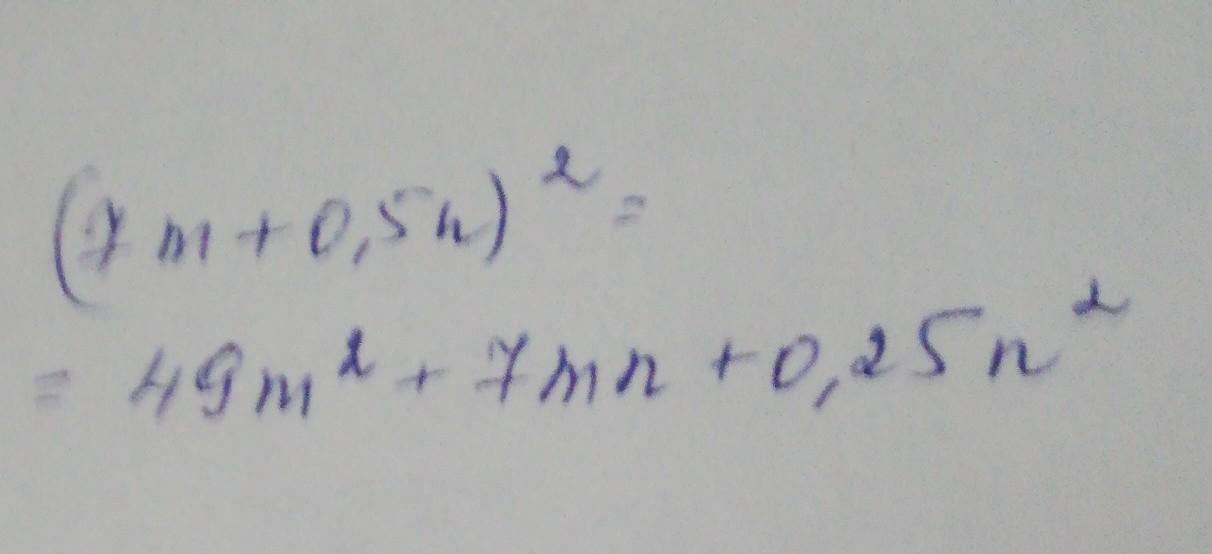 (7m+0,5n)²=
= 49m²+7mn+0,25n²